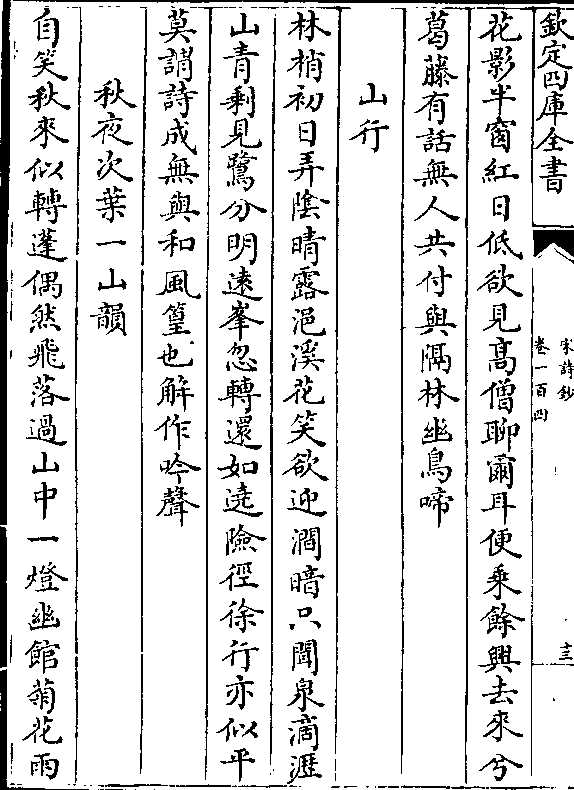 欽定四庫全書
宋詩鈔
卷一百四
十三
花影半窗紅日低欲見高僧聊爾耳便乘餘興去來兮
葛藤有話無人共付與隔林幽鳥啼
山行
林梢初日弄陰晴露浥溪花笑欲迎澗暗只聞泉滴瀝
山青剰見鷺分明逺峯忽轉還如遶險徑徐行亦似平
莫謂詩成無與和風篁也解作吟聲
秋夜次葉一山韻
自笑秋來似轉蓬偶然飛落過山中一燈幽館菊花雨